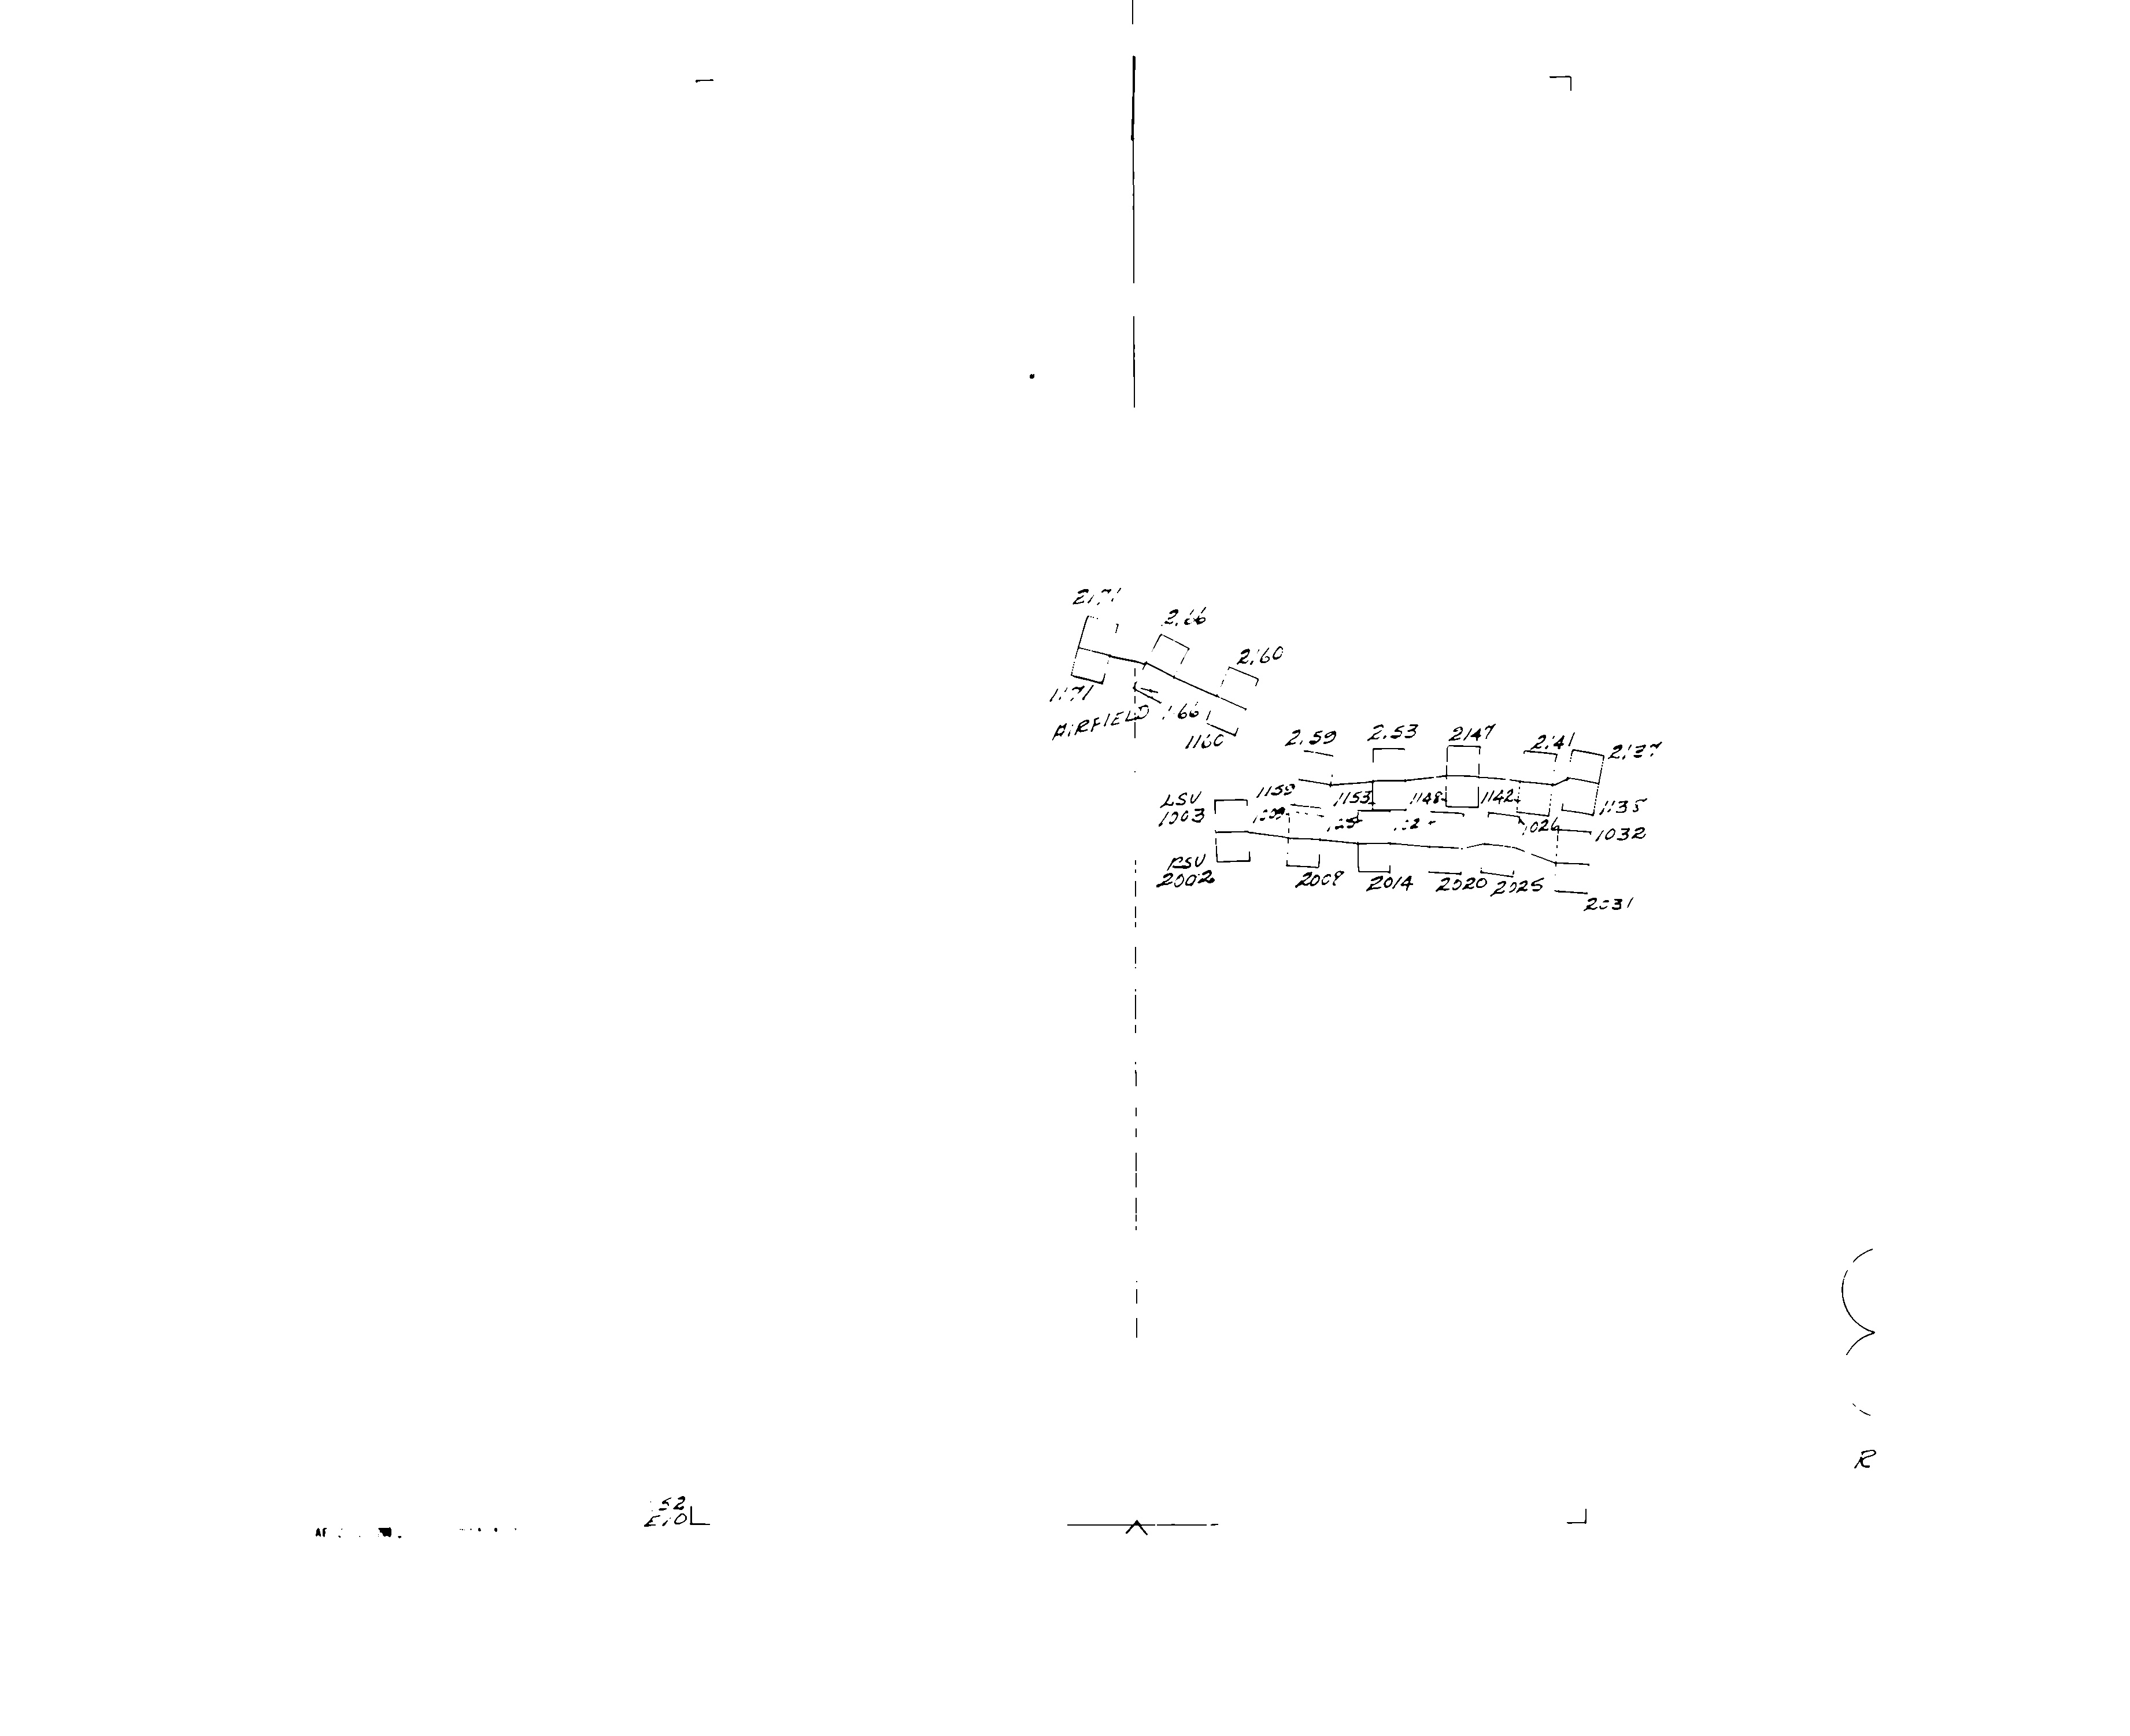 2171
2166
2160
1171
AIRFIELD 1166
1160
2159 2153 2147 2141 2137
LSV 1159 1153 1148 1142 1135
1003 1026 1032
RSV
2002 2008 2014 2020 2025
2031
R
52
AF